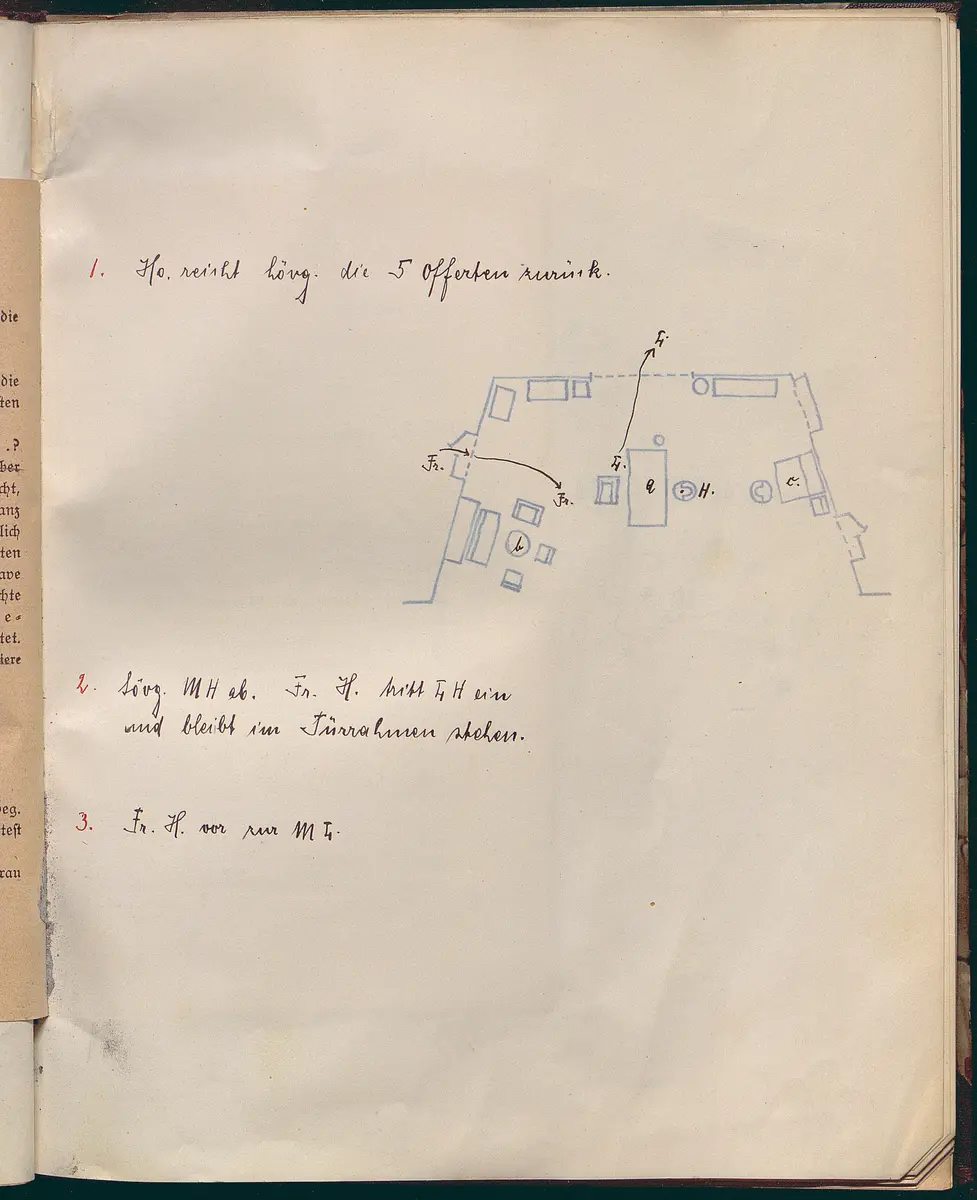 die
die
ten
.?
ber
cht,
anz
lich
ten
ave
chte
e=
tet.
iere
eg.
test
rau
1. Ho. reicht Lövg. die 5 Offerten zurück.
L.
Fr.
L.
Fr.
a
H.
c.
b
2. Lövg. MH ab. Fr. H. tritt LH ein
und bleibt im Türrahmen stehen.
3. Fr. H. vor zur ML.